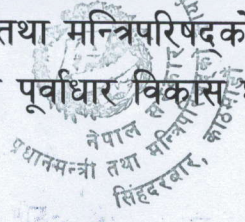 तथा मन्त्रिपरिषद्को
पूर्वाधार विकास
नेपाल सरकार
प्रधानमन्त्री तथा मन्त्रिपरिषद्को
सिंहदरबार, काठमाडौं